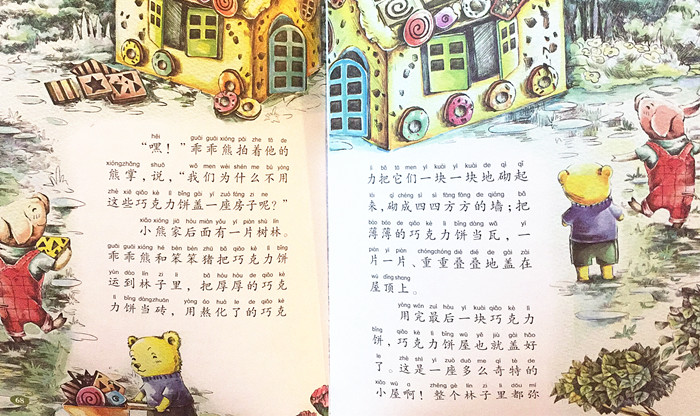 hēi guāi guāi xióng pāi zhe tā de
“嘿！”乖乖熊拍着他的
xióngzhǎng shuō wǒ men wèi shén me bú yòng
熊掌，说，“我们为什么不用
zhè xiē qiǎo kè lì bǐng gài yí zuò fáng zi ne
这些巧克力饼盖一座房子呢？”
xiǎo xióng jiā hòu miàn yǒu yí piàn shù lín
小熊家后面有一片树林。
guāi guāi xióng hé bèn bèn zhū bǎ qiǎo kè lì bǐng
乖乖熊和笨笨猪把巧克力饼
yùn dào lín zi li bǎ hòu hòu de qiǎo kè
运到林子里，把厚厚的巧克
lì bǐng dàngzhuān yòng áo huà le de qiǎo kè
力饼当砖，用熬化了的巧克
68
lì bǎ tā men yí kuài yí kuài de qì qǐ
力把它们一块一块地砌起
lái qì chéng sì sì fāng fāng de qiáng bǎ
来，砌成四四方方的墙；把
báo báo de qiǎo kè lì bǐng dàng wǎ yí
薄薄的巧克力饼当瓦，一
piàn yí piàn chóngchóng dié dié de gài zài
片一片，重重叠叠地盖在
wū dǐngshang
屋顶上。
yòng wán zuì hòu yí kuài qiǎo kè lì
用完最后一块巧克力
bǐng qiǎo kè lì bǐng wū yě jiù gài hǎo
饼，巧克力饼屋也就盖好
le zhè shì yí zuò duō me qí tè de
了。这是一座多么奇特的
xiǎo wū a zhěng gè lín zi li dōu mí
小屋啊！整个林子里都弥